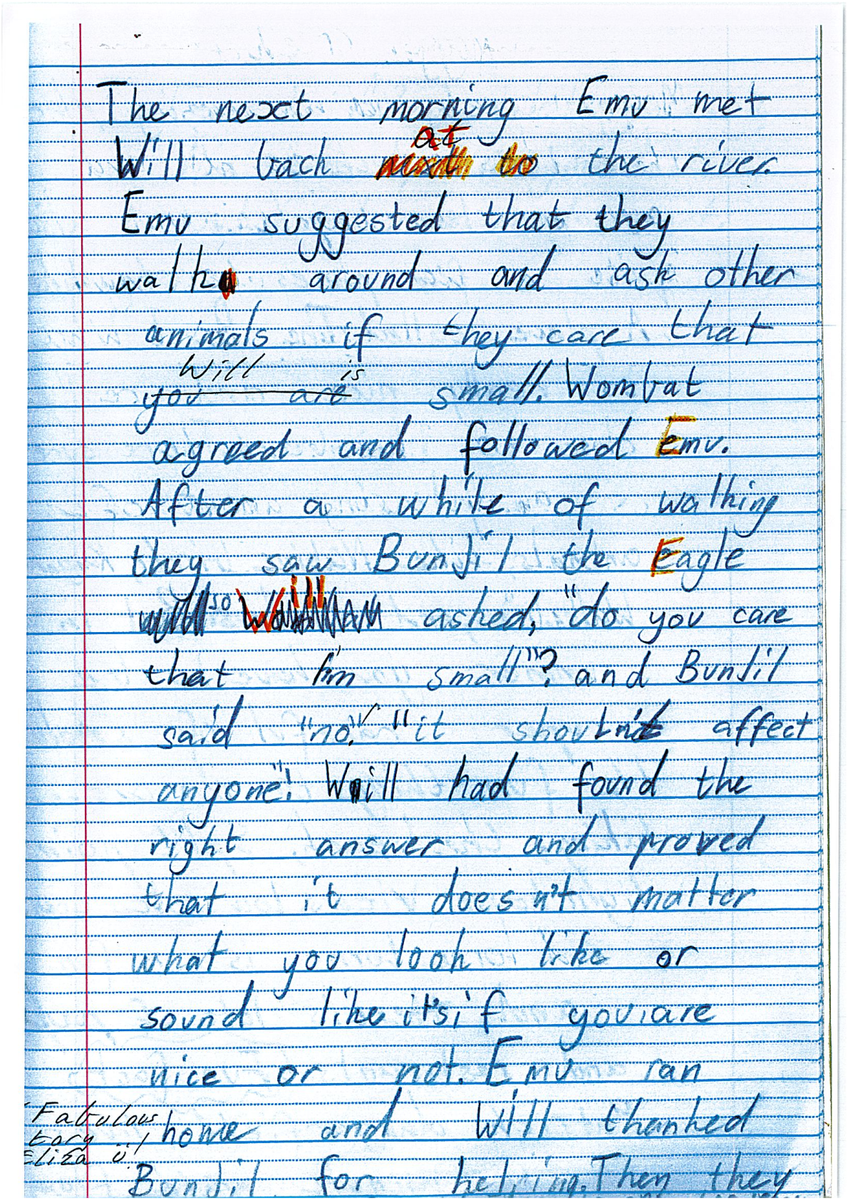 The next morning Emu met
at
Will back to the river.
Emu suggested that they
walk around and ask other
animals if they care that
Will is
you are small. Wombat
agreed and followed Emu.
After a while of walking
they saw Bunjil the Eagle
so Will asked, "do you care
that I'm small"? and Bunjil
said "no." "it shouldn't affect
anyone"! Will had found the
right answer and proved
that it doesn't matter
what you look like or
sound like it's if you are
nice or not. Emu ran
home and Will thanked
Bunjil for helping. Then they
Fabulous
story
Eliza ü!